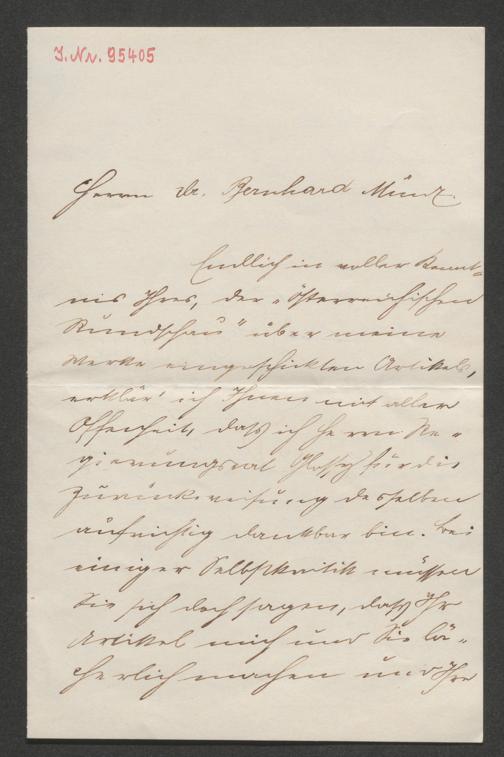 J. Nr. 95405
Herrn Dr. Bernhard Münz.
Endlich in voller Kennt-
nis Ihres, der „Österreichischen
Rundschau" über meine
Werke eingeschickten Artikels,
erklär' ich Ihnen mit aller
Offenheit, daß ich Herrn Re-
gierungsrat Glossy für die
Zurückweisung desselben
aufrichtig dankbar bin. Bei
einiger Selbstkritik müssen
Sie sich doch sagen, daß Ihr
Artikel mich und Sie lä-
cherlich machen und Ihre